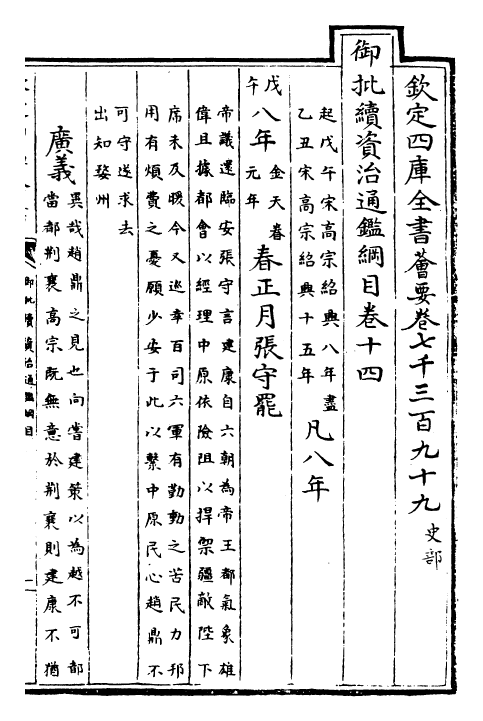 欽定四庫全書薈要卷七千三百九十九 史部
御批續資治通鑑綱目卷十四
起戊午宋高宗紹興八年盡
乙丑宋高宗紹興十五年
凡八年
戊午
八年
金天眷
元年
春正月張守罷
帝議還臨安張守言建康自六朝為帝王都氣象雄
偉且據都會以經理中原依險阻以捍禦疆敵陛下
席未及暖今又巡幸百司六軍有勤動之苦民力邦
用有煩費之憂願少安于此以繫中原民心趙鼎不
可守遂求去
出知婺州
廣義
異哉趙鼎之見也向嘗建策以為越不可都
當都荊襄高宗既無意於荊襄則建康不猶
御批續資治通鑑綱目
一